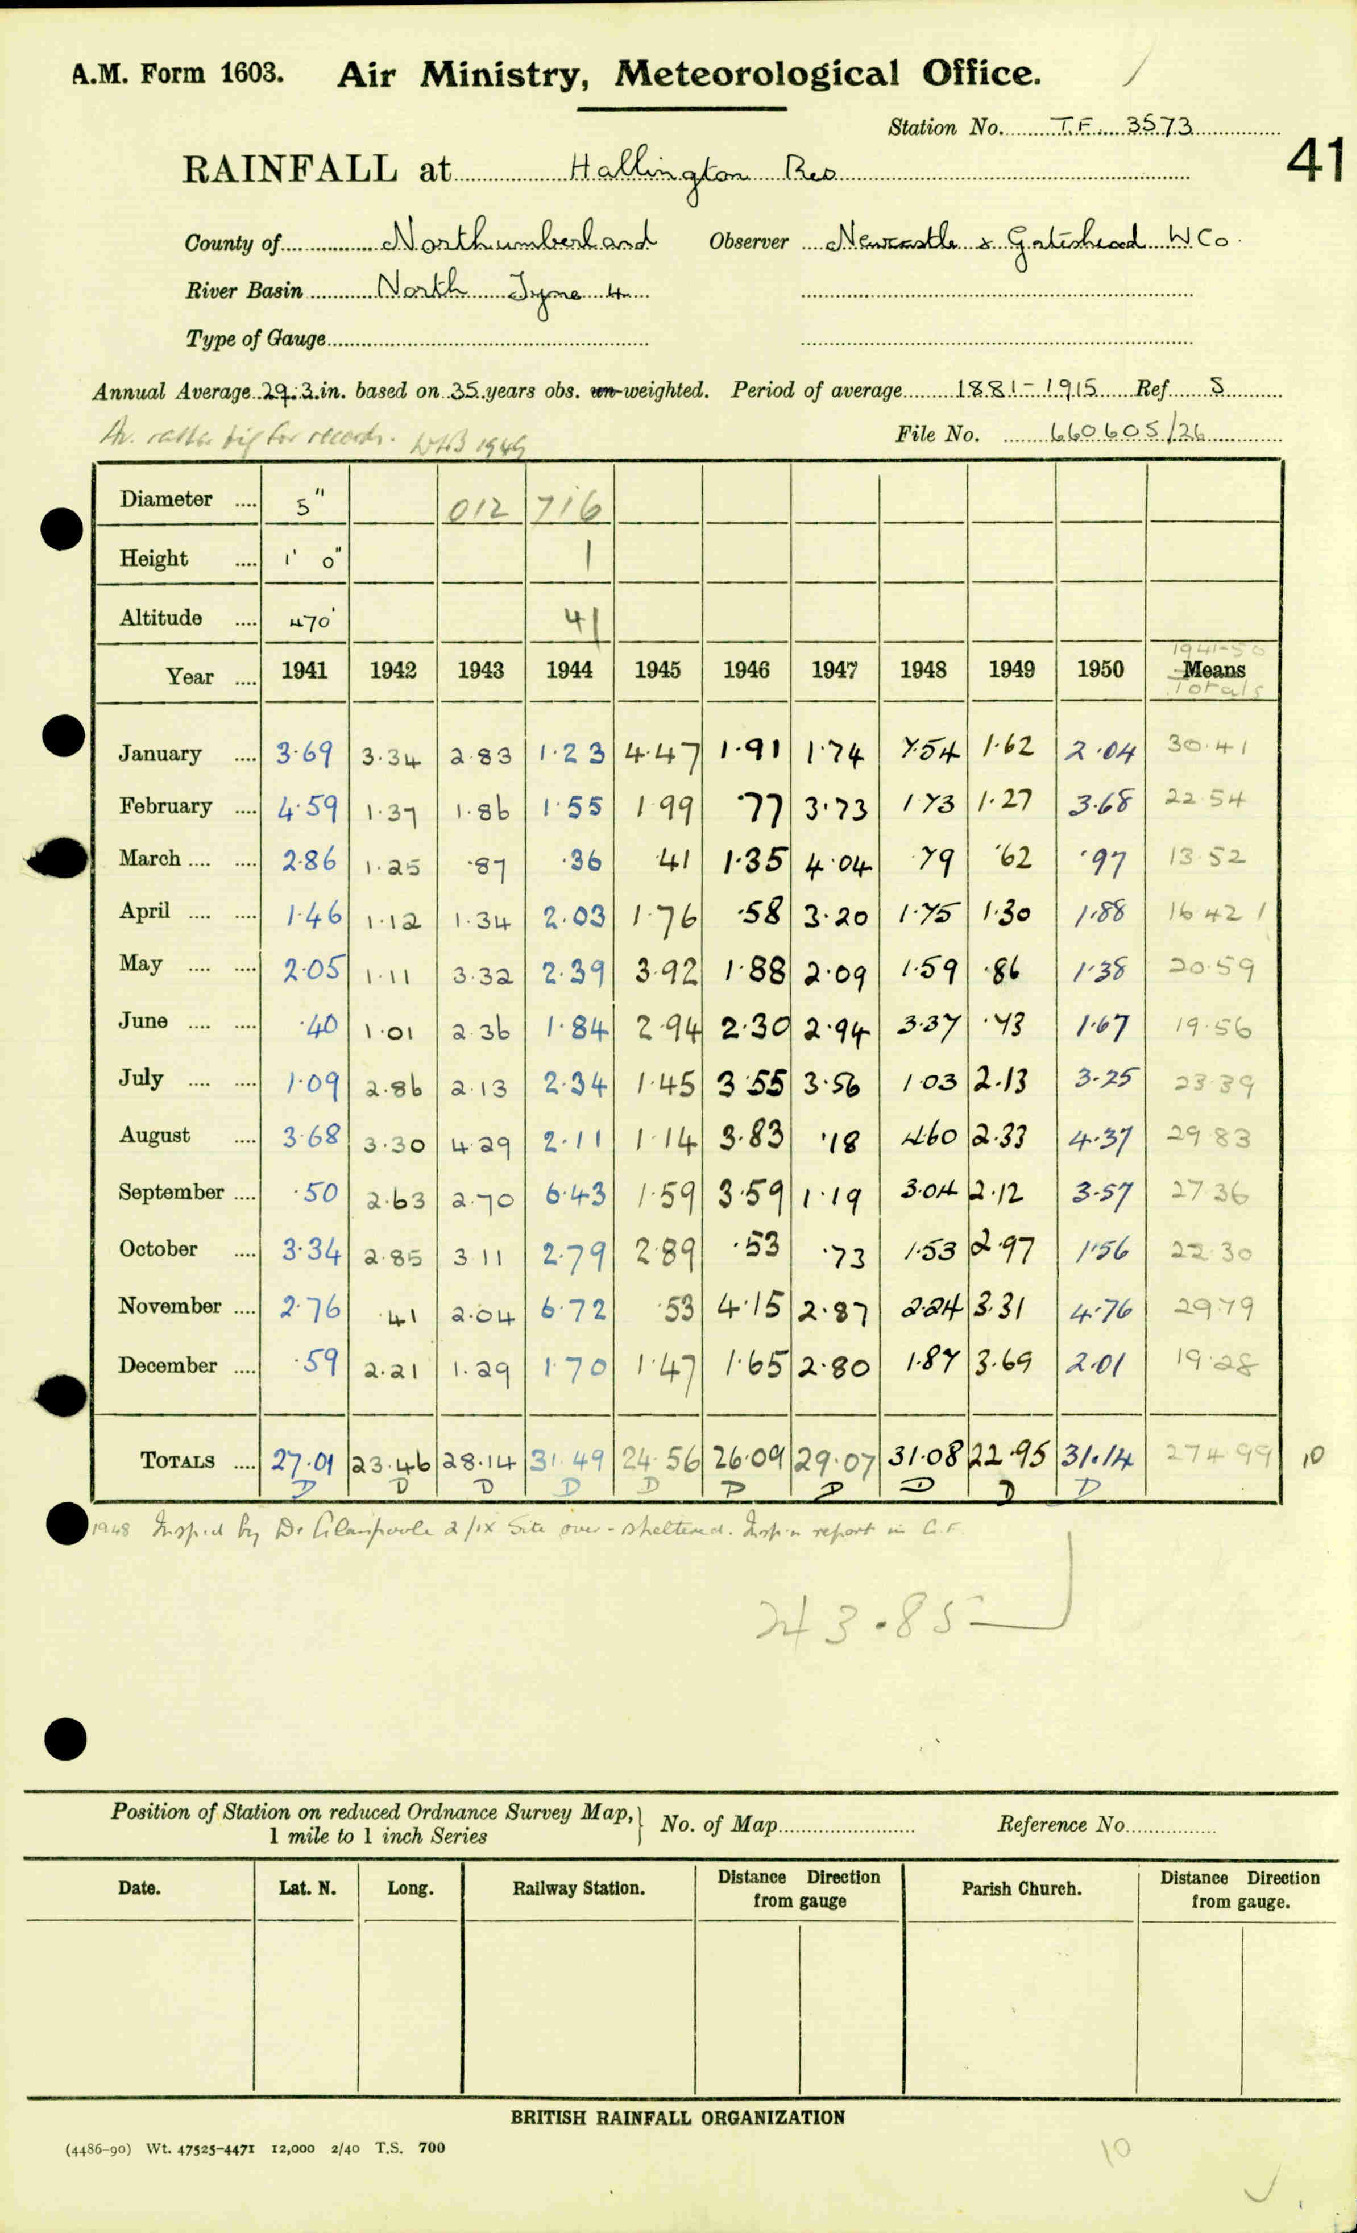 A.M. Form 1603. Air Ministry, Meteorological Office.
Station No. T.F. 3573
41
RAINFALL at Hallington Res
County of Northumberland Observer Newcastle & Gateshead W Co.
River Basin North Tyne 4
Type of Gauge
Annual Average 29.3 in. based on 35 years obs. un-weighted. Period of average 1881-1915 Ref S
Av. rather big for records. WHB 1949
File No. 660605/26
Diameter .... 5" 012 716
Height .... 1' 0" 1
Altitude .... 470' 41
1941-50
Year .... 1941 1942 1943 1944 1945 1946 1947 1948 1949 1950 Means
Totals
January .... 3.69 3.34 2.83 1.23 4.47 1.91 1.74 7.54 1.62 2.04 30.41
February .... 4.59 1.37 1.86 1.55 1.99 .77 3.73 1.73 1.27 3.68 22.54
March .... .... 2.86 1.25 .87 .36 .41 1.35 4.04 .79 .62 .97 13.52
April .... .... 1.46 1.12 1.34 2.03 1.76 .58 3.20 1.75 1.30 1.88 16.42 1
May .... .... 2.05 1.11 3.32 2.39 3.92 1.88 2.09 1.59 .86 1.38 20.59
June .... .... .40 1.01 2.36 1.84 2.94 2.30 2.94 3.37 .73 1.67 19.56
July .... .... 1.09 2.86 2.13 2.34 1.45 3.55 3.56 1.03 2.13 3.25 23.39
August .... 3.68 3.30 4.29 2.11 1.14 3.83 .18 4.60 2.33 4.37 29.83
September .... .50 2.63 2.70 6.43 1.59 3.59 1.19 3.04 2.12 3.57 27.36
October .... 3.34 2.85 3.11 2.79 2.89 .53 .73 1.53 2.97 1.56 22.30
November .... 2.76 .41 2.04 6.72 .53 4.15 2.87 2.24 3.31 4.76 29.79
December .... .59 2.21 1.29 1.70 1.47 1.65 2.80 1.87 3.69 2.01 19.28
TOTALS .... 27.01 23.46 28.14 31.49 24.56 26.09 29.07 31.08 22.95 31.14 274.99 10
D D D D D D D D D D
1948 Insp.d by Dr 2/IX Site over-sheltered. Insp.n report in C.F.
243.85
Position of Station on reduced Ordnance Survey Map, } No. of Map Reference No.
1 mile to 1 inch Series
Date. Lat. N. Long. Railway Station. Distance Direction from gauge Parish Church. Distance Direction from gauge.
BRITISH RAINFALL ORGANIZATION
(4486-90) Wt. 47525-4471 12,000 2/40 T.S. 700
10